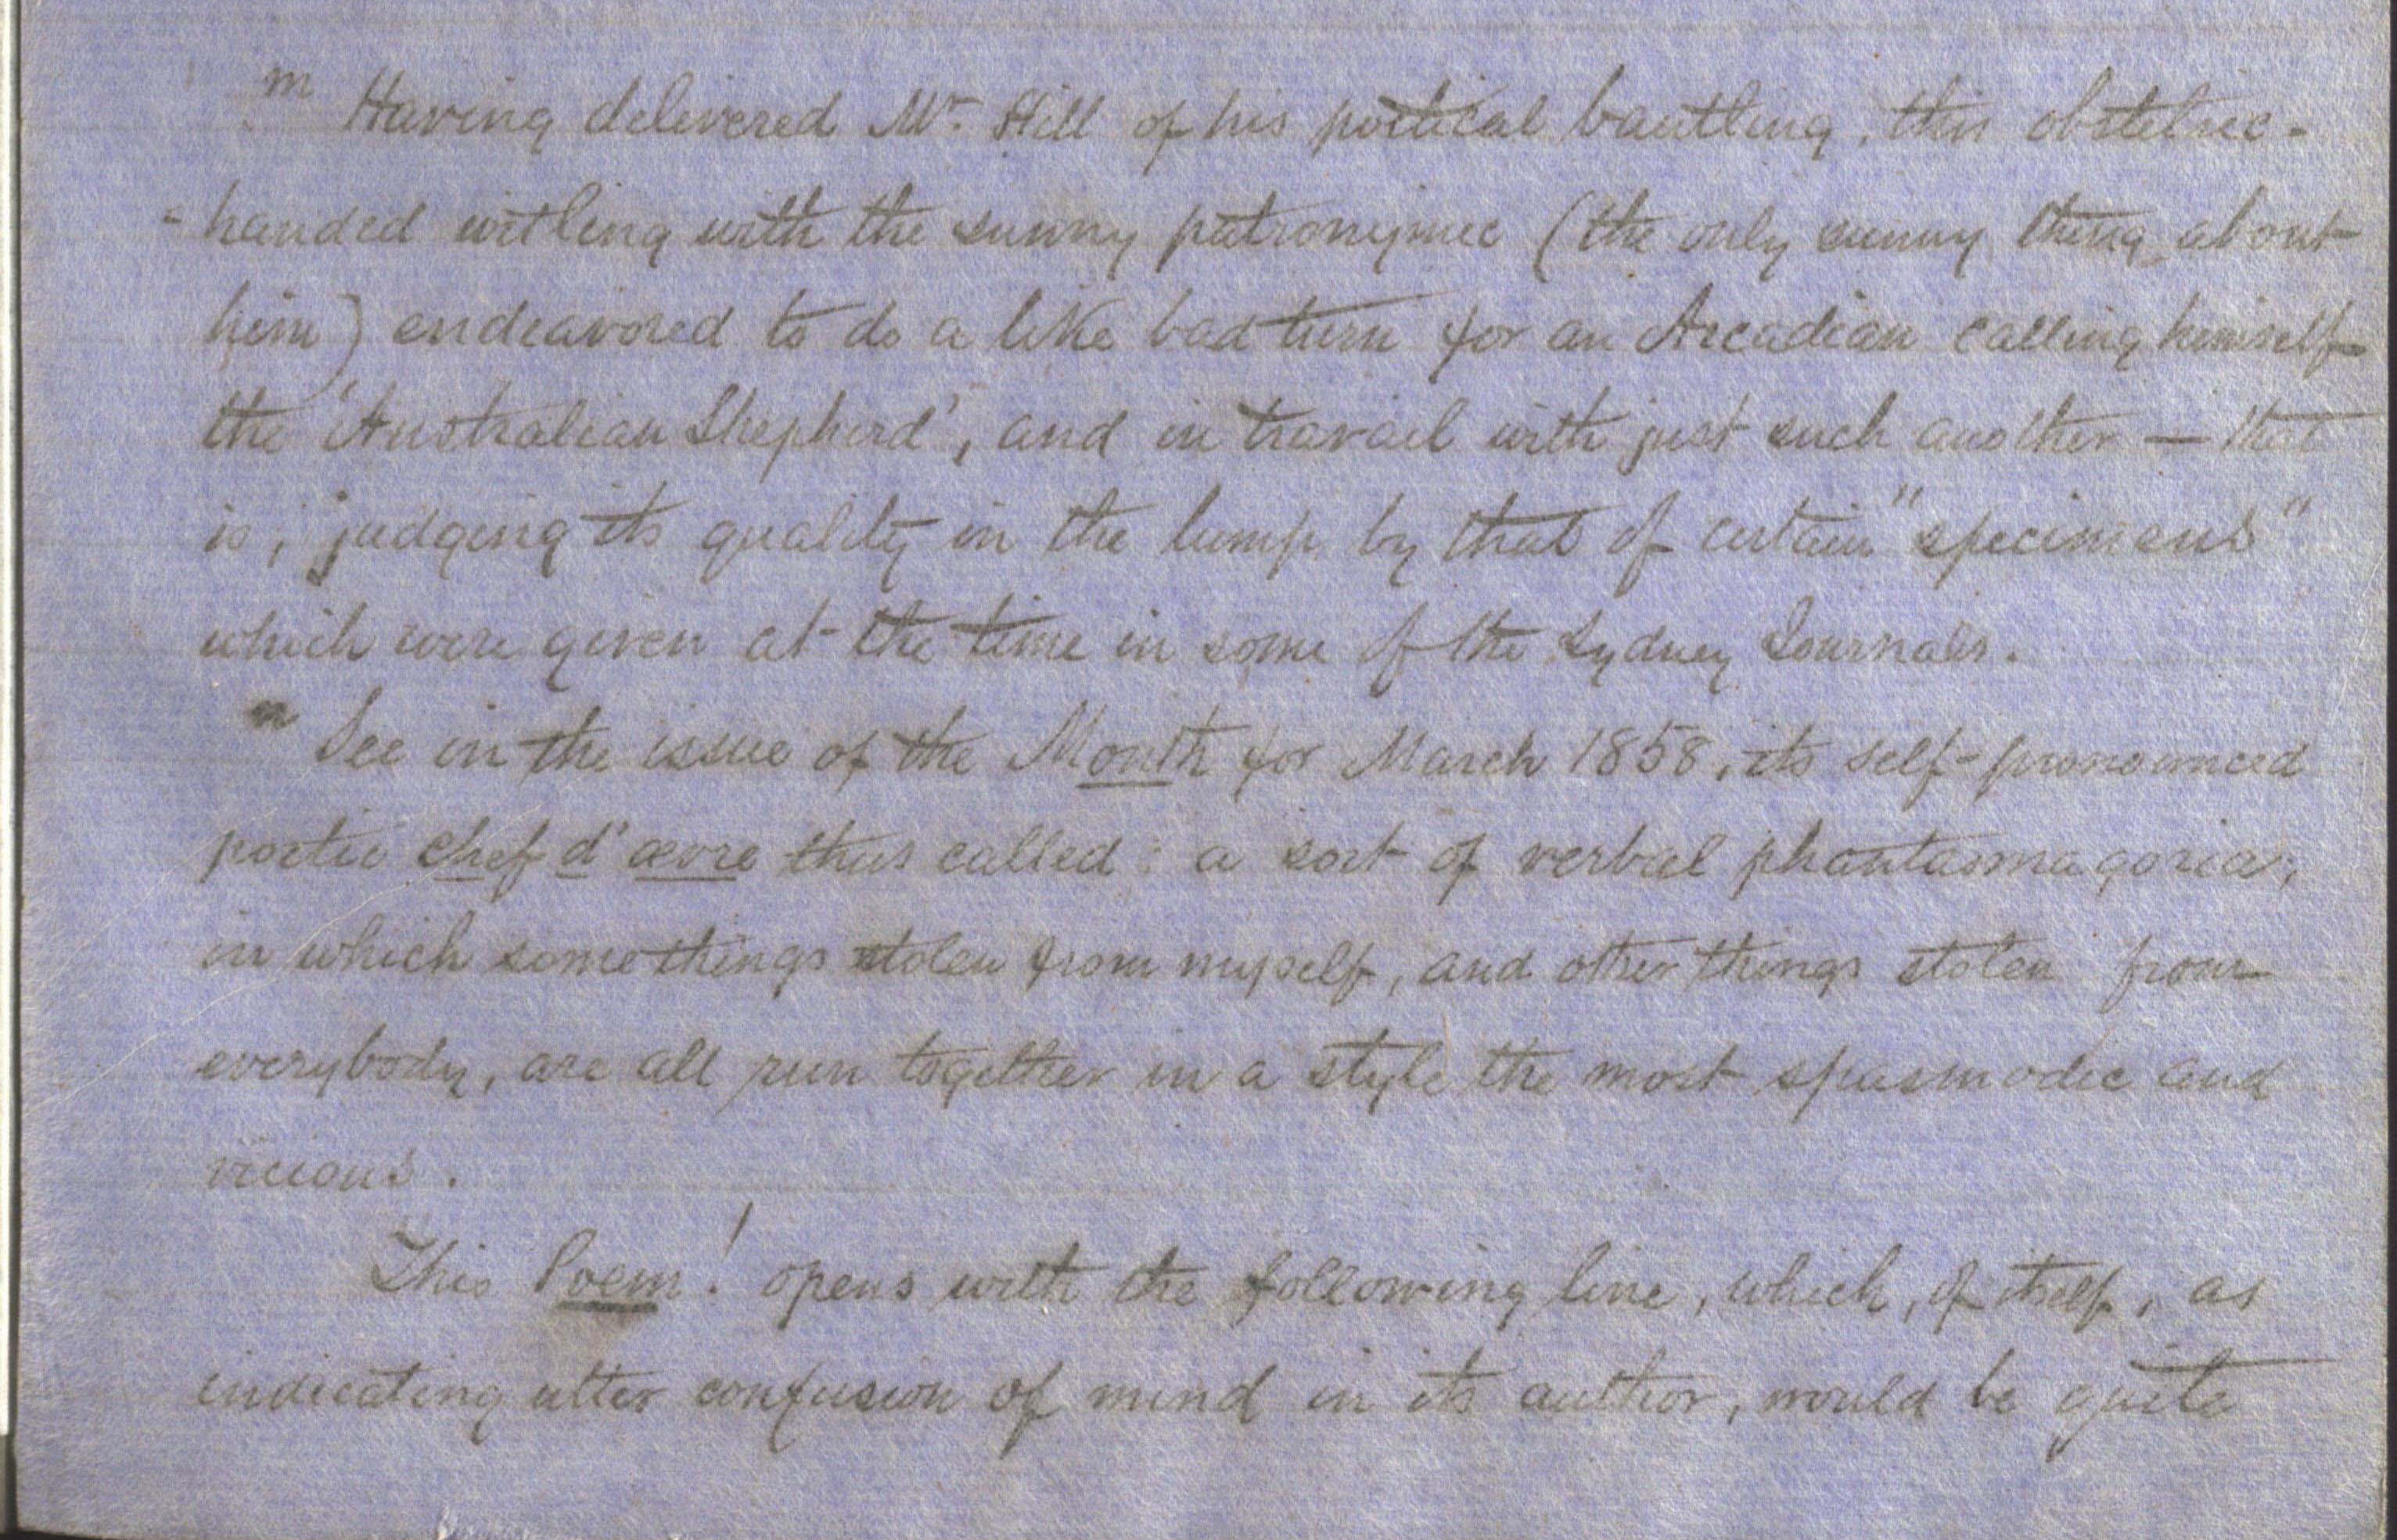 m Having delivered Mr. Hill of his poetical bantling, this obstetric-
-handed witling with the sunny patronymic (the only sunny thing about
him) endeavored to do a like bad turn for an Arcadian calling himself
the 'Australian Shepherd', and in travail with just such another — that
is, judging its quality in the lump by that of certain "specimens"
which were given at the time in some of the Sydney Journals.
n See in the issue of the Month for March 1858, its self-pronounced
poetic chef d'œvre thus called: a sort of verbal phantasmagoria;
in which some things stolen from myself, and other things stolen from
everybody, are all run together in a style the most spasmodic and
vicious.
This Poem! opens with the following line, which, of itself, as
indicating utter confusion of mind in its author, would be quite